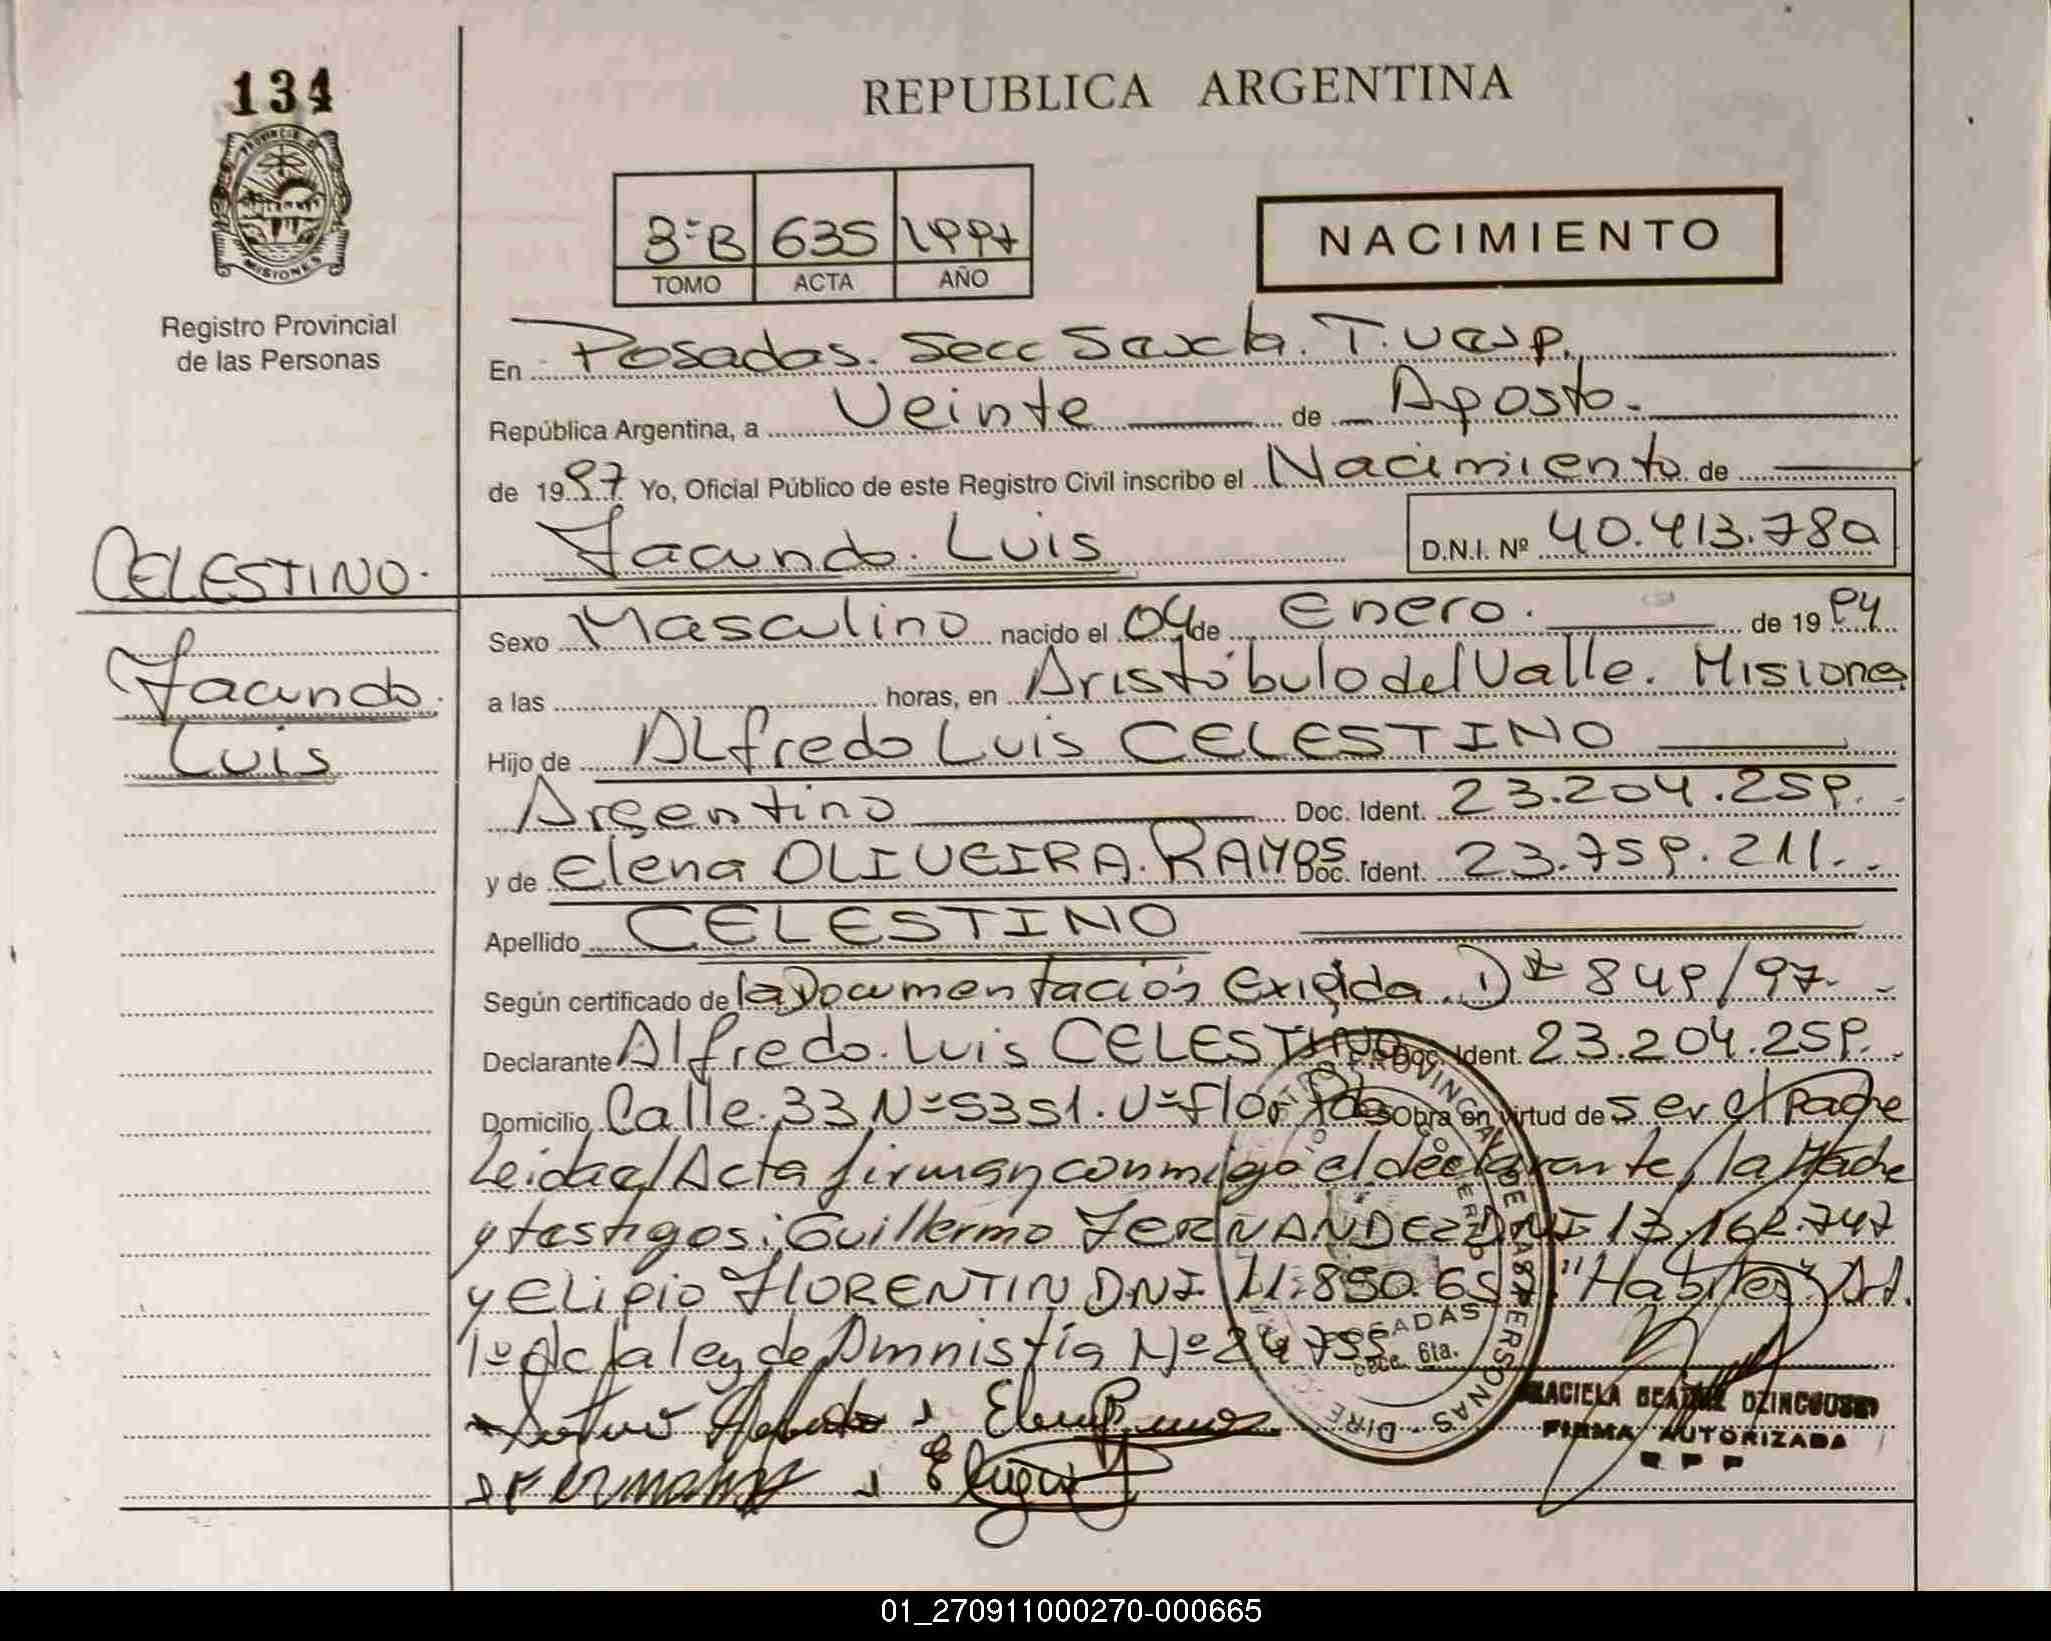 134
REPUBLICA ARGENTINA
PROVINCIA DE MISIONES
Registro Provincial
de las Personas
3ºB 635 1997
TOMO ACTA AÑO
NACIMIENTO
En Posadas. Secc Sexta. T.
República Argentina, a Veinte de Agosto.
de 1997 Yo, Oficial Público de este Registro Civil inscribo el Nacimiento de
Facundo. Luis D.N.I. Nº 40.413.780
CELESTINO.
Facundo.
Luis
Sexo Masculino nacido el 04 de Enero. de 1994
a las horas, en Aristóbulo del Valle. Misiones
Hijo de Alfredo Luis CELESTINO
Argentino Doc. Ident. 23.204.259.
y de Elena OLIVEIRA. RAMOS Doc. Ident. 23.759.211.
Apellido CELESTINO
Según certificado de la Documentación Exigida. 849/97.
Declarante Alfredo. Luis CELESTINO Doc. Ident. 23.204.259.
Domicilio Calle. 33 Nº 5351. Vº Flórida Obra en virtud de ser el Padre
Leida el Acta firman conmigo el declarante, la Madre
y testigos: Guillermo FERNANDEZ DNI 13.162.747
y Elipio FLORENTIN DNI. 11.850. Art.
1º de la ley de Amnistía Nº 24.755
POSADAS
Secc. 6ta.
FIRMA AUTORIZADA
R P P
01_270911000270-000665